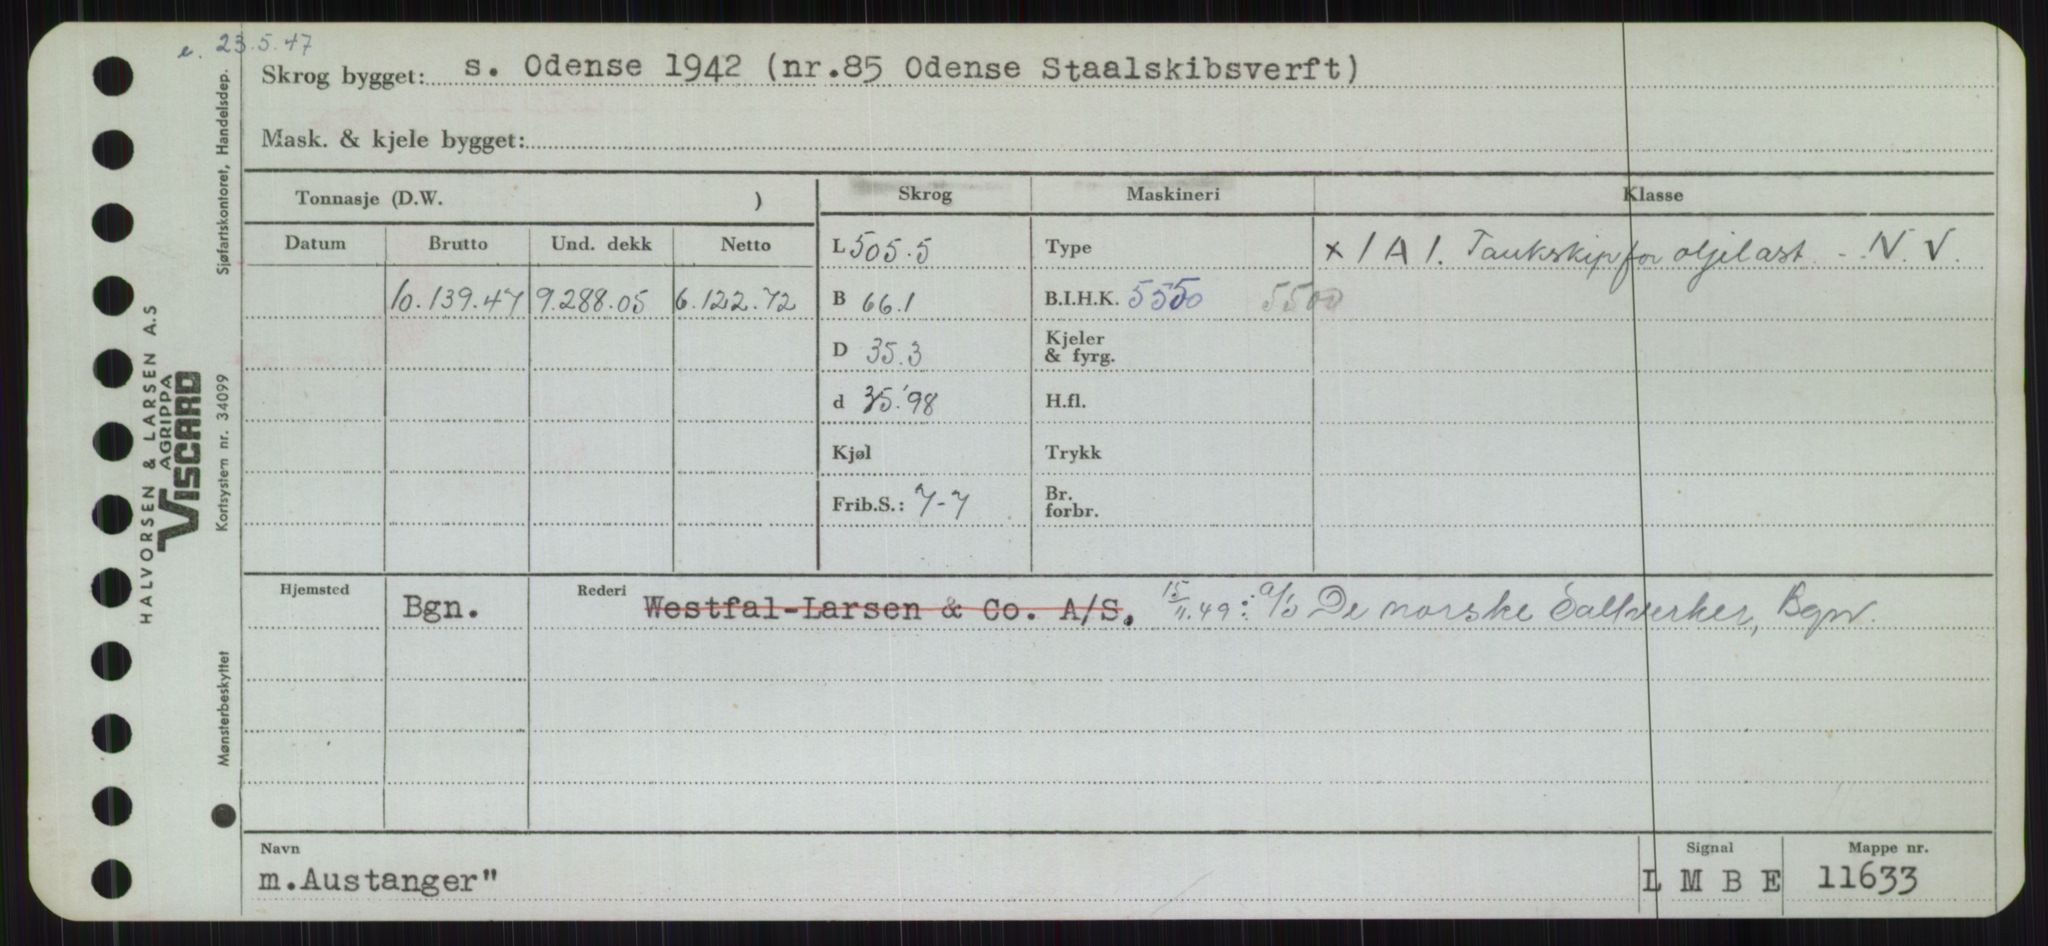 e. 23.5.47
Skrog bygget: s. Odense 1942 (nr.85 Odense Staalskibsverft)
Mask. & kjele bygget:
Tonnasje (D.W. )
Skrog
Maskineri
Klasse
Datum Brutto Und. dekk Netto
L 505.5
Type
x 1 A 1. Tankskip for oljelast. - N. V.
10.139.47 9.288.05 6.122.72
B 66.1
B.I.H.K. 5550 5500
D 35.3
Kjeler
& fyrg.
d 35.'98
H.fl.
Kjøl
Trykk
Frib.S.: 7-7
Br.
forbr.
Hjemsted Bgn.
Rederi Westfal-Larsen & Co. A/S. 15/11.49: A/S De norske Saltverker, Bgn.
Navn
m.Austanger"
Signal
L M B E
Mappe nr.
11633
Sjøfartskontoret, Handelsdep.
HALVORSEN & LARSEN A.S
AGRIPPA
VISCARD
Kortsystem nr. 34099
Mønsterbeskyttet